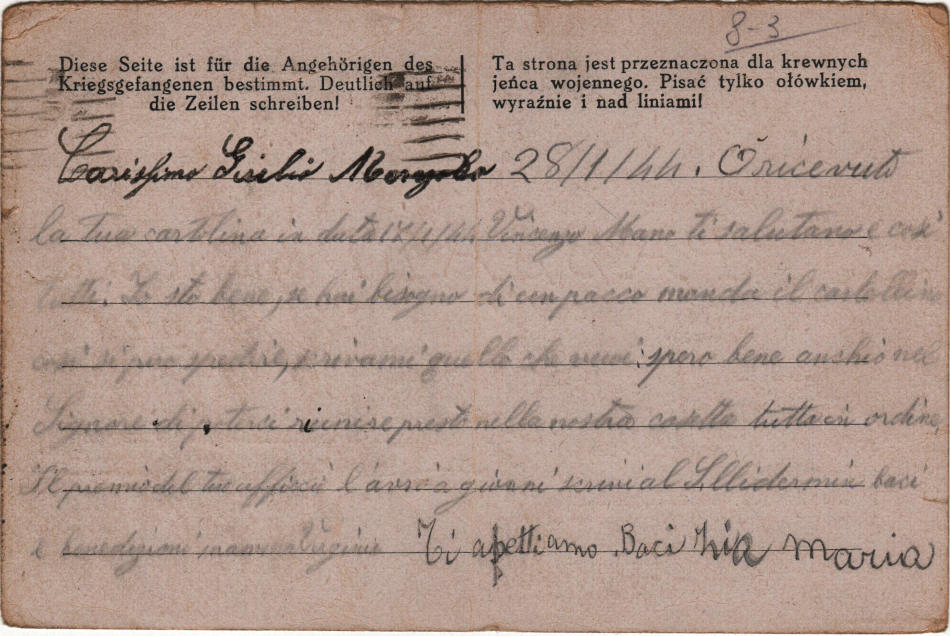 8-3
Diese Seite ist für die Angehörigen des
Kriegsgefangenen bestimmt. Deutlich auf
die Zeilen schreiben!
Ta strona jest przeznaczona dla krewnych
jeńca wojennego. Pisać tylko ołówkiem,
wyraźnie i nad liniami!
Carissimo Giulio 28/1/44. O ricevuta
la tua cartolina in data Vincenzo Mano ti salutano e così
tutti. Io sto bene, se hai bisogno di un pacco manda il cartellino
così si può spedire, scrivami quello che spero bene anchio nel
Signore di poterci riunire presto nella nostra casetta tutta in ordine
Il del tuo l'avrò a giorni scrivi al baci
e benedizioni mamma Virginia Ti apettiamo Baci zia Maria